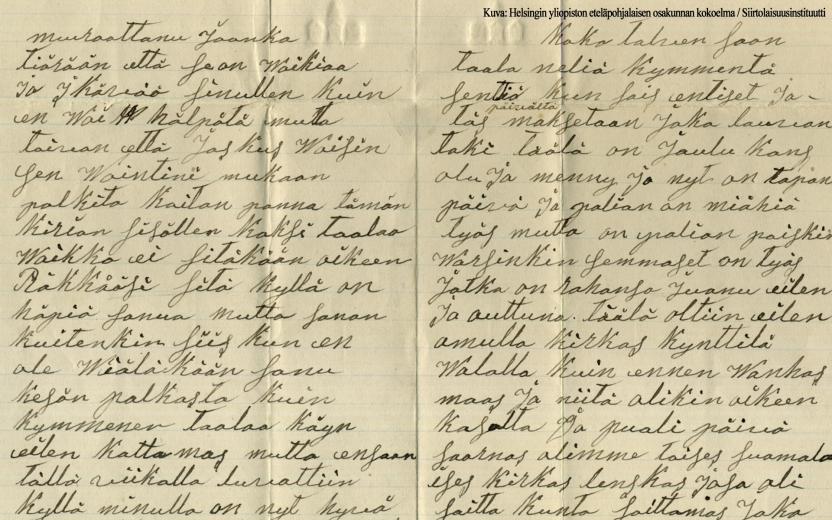 Kuva: Helsingin yliopiston eteläpohjalaisen osakunnan kokoelma / Siirtolaisuusinstituutti
muuraattanu Jaanka
tiärään että se on Waikiaa
ja Ikävää sinullen kuin
en Woi hälpätä mutta
taivan että Jos kus Woisin
sen Wointini mukaan
palkita kaitan panna tämän
kirian sisällen kaksi taalaa
Waikka ei sitäkään oikeen
Räkkääsi sitä kyllä on
häpiä sanua mutta sanan
kuitenkin siis kun en
ole Wiäläkään sanu
kesän palkasta kuin
kymmenen taalaa käyn
eilen kattamas mutta en saan
tällä viikalla luvattiin
kyllä minulla on nyt hyvä
Koko talven saan
taala neliä kymmentä
sentiä kun sais entiset ja-
päivältä
täs maksetaan joka lauvan
taki täälä on Jaulu kans
olu ja menny ja nyt on tapan
päivä ja palian on miähiä
työs mutta on palian paiskin
Warsinkin semmaset on työs
jotka on rahansa Juanu eilen
ja auttuna. täälä oltiin eilen
amulla kirkas kynttilä
Walalla kuin ennen Wanhas
maas ja niitä alikin oikeen
kasalta ja puali päivää
saarnas alimme taises suamala
ises kirkas lenskas josa ali
saitta kunta saittamas joka